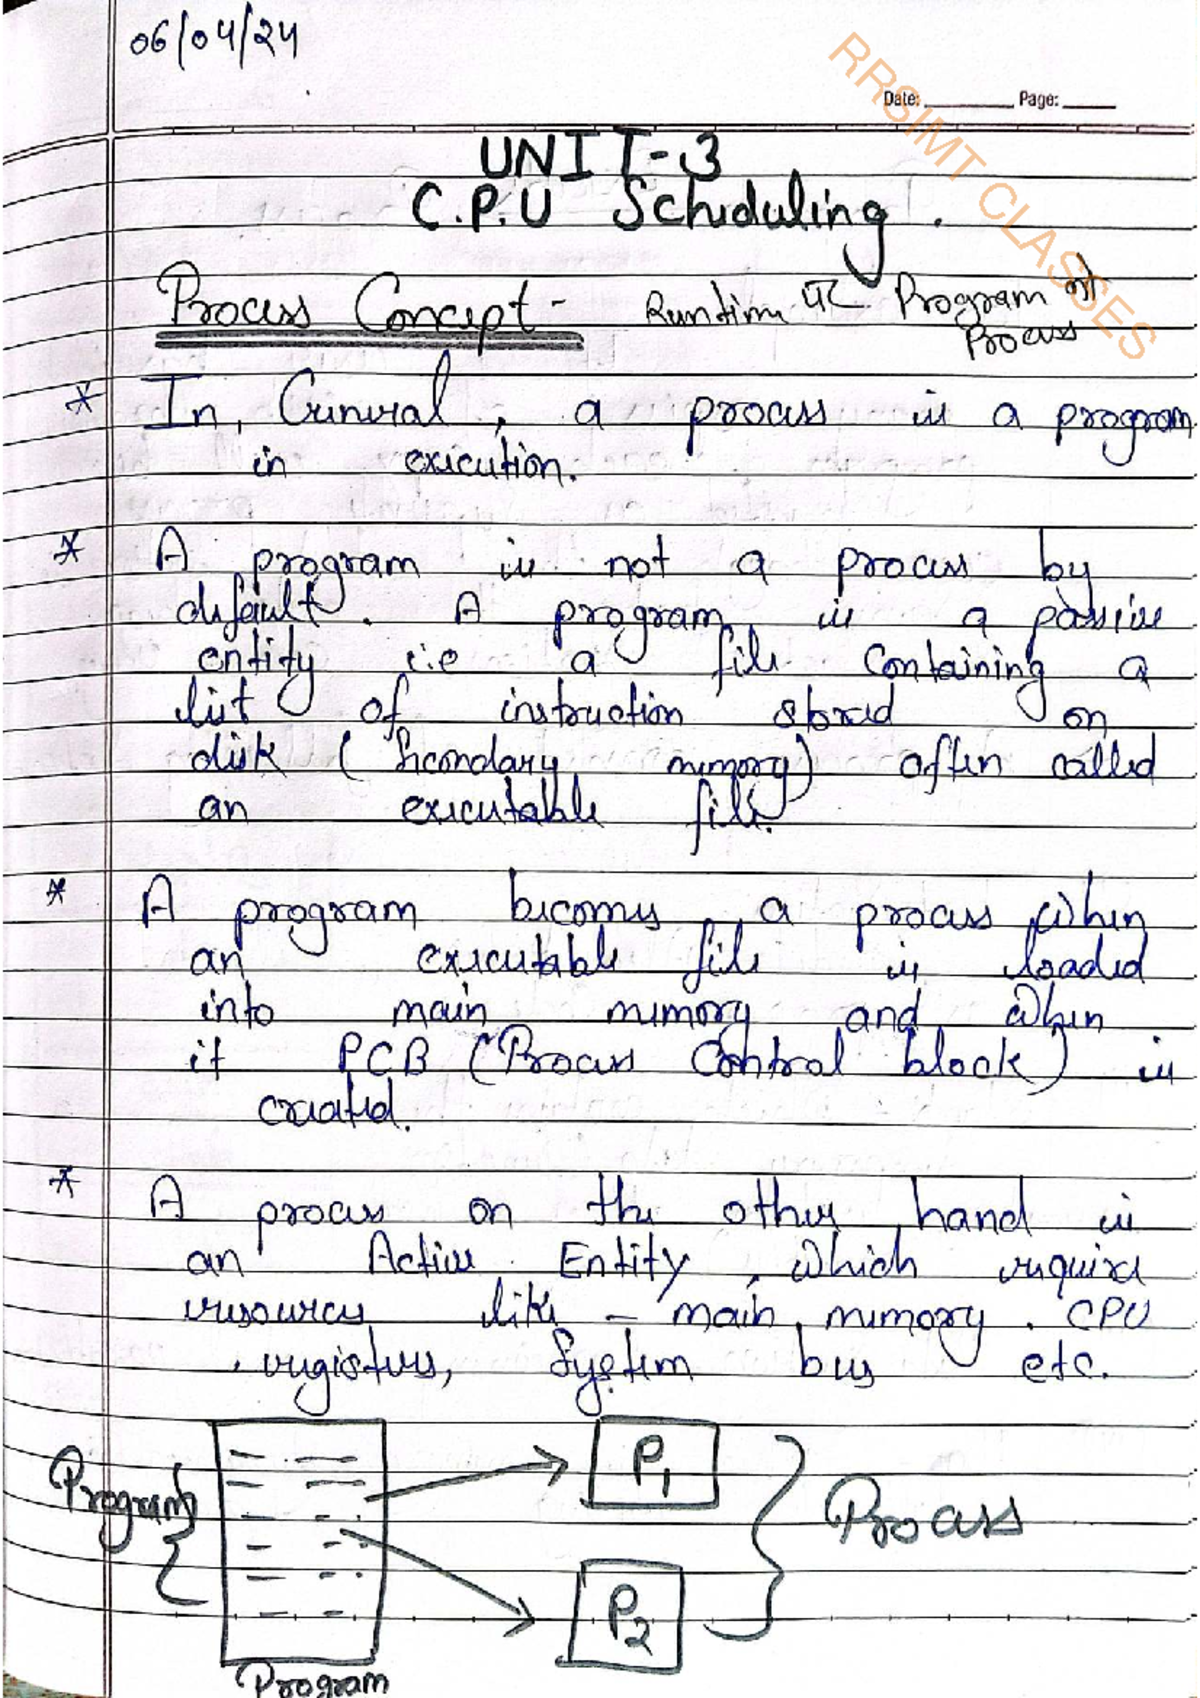 06/04/24
RRSIMT CLASSES
Date: Page:
UNIT-3
C.P.U Scheduling.
Process Concept - Runtime पर Program को
Process
* In, General, a process is a program
in execution.
* A program is not a process by
default. A program is a passive
entity i.e a file containing a
list of instruction stored on
disk (Secondary memory) often called
an executable file.
* A program becomes a process when
an executable file is loaded
into main memory and when
it PCB (Process Control block) is
created.
* A process on the other hand is
an Active Entity, which require
resources like - main memory, CPU
registers, System bus etc.
Program
P1
P2
Process
Program